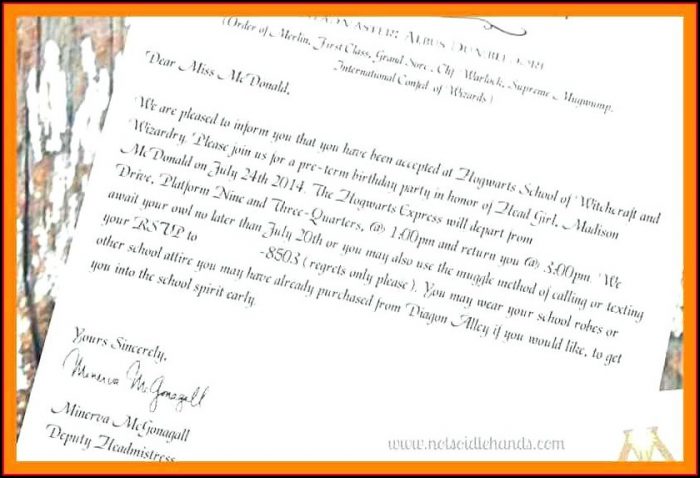 (Order of Merlin, First Class, Grand Sorc., Chf. Warlock, Supreme Mugwump,
International Confed. of Wizards)
Dear Miss McDonald,
We are pleased to inform you that you have been accepted at Hogwarts School of Witchcraft and
Wizardry. Please join us for a pre-term birthday party in honor of Head Girl, Madison
McDonald on July 24th 2014. The Hogwarts Express will depart from
Drive, Platform Nine and Three-Quarters, @ 1:00pm and return you @ 3:00pm. We
await your owl no later than July 20th or you may also use the muggle method of calling or texting
your RSVP to -8503 (regrets only please). You may wear your school robes or
other school attire you may have already purchased from Diagon Alley if you would like, to get
you into the school spirit early.
Yours Sincerely,
Minerva McGonagall
Minerva McGonagall
Deputy Headmistress
www.notsoidlehands.com